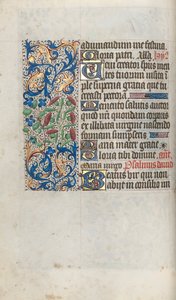 adiuuandum me festina
Gloria patri. Alla. ymꝰ
Veni creator spūs men
tes tuorum visita ī
ple superna gratia que
creasti pectora
Memento salutis auctor
quod nostri quondam corporis
ex illibata virgine nascendo
formam sumpseris
Maria mater gratie
Gloria tibi domine.
maria virgo Psalmus dauid
Beatus vir qui non
abiit in consilio im